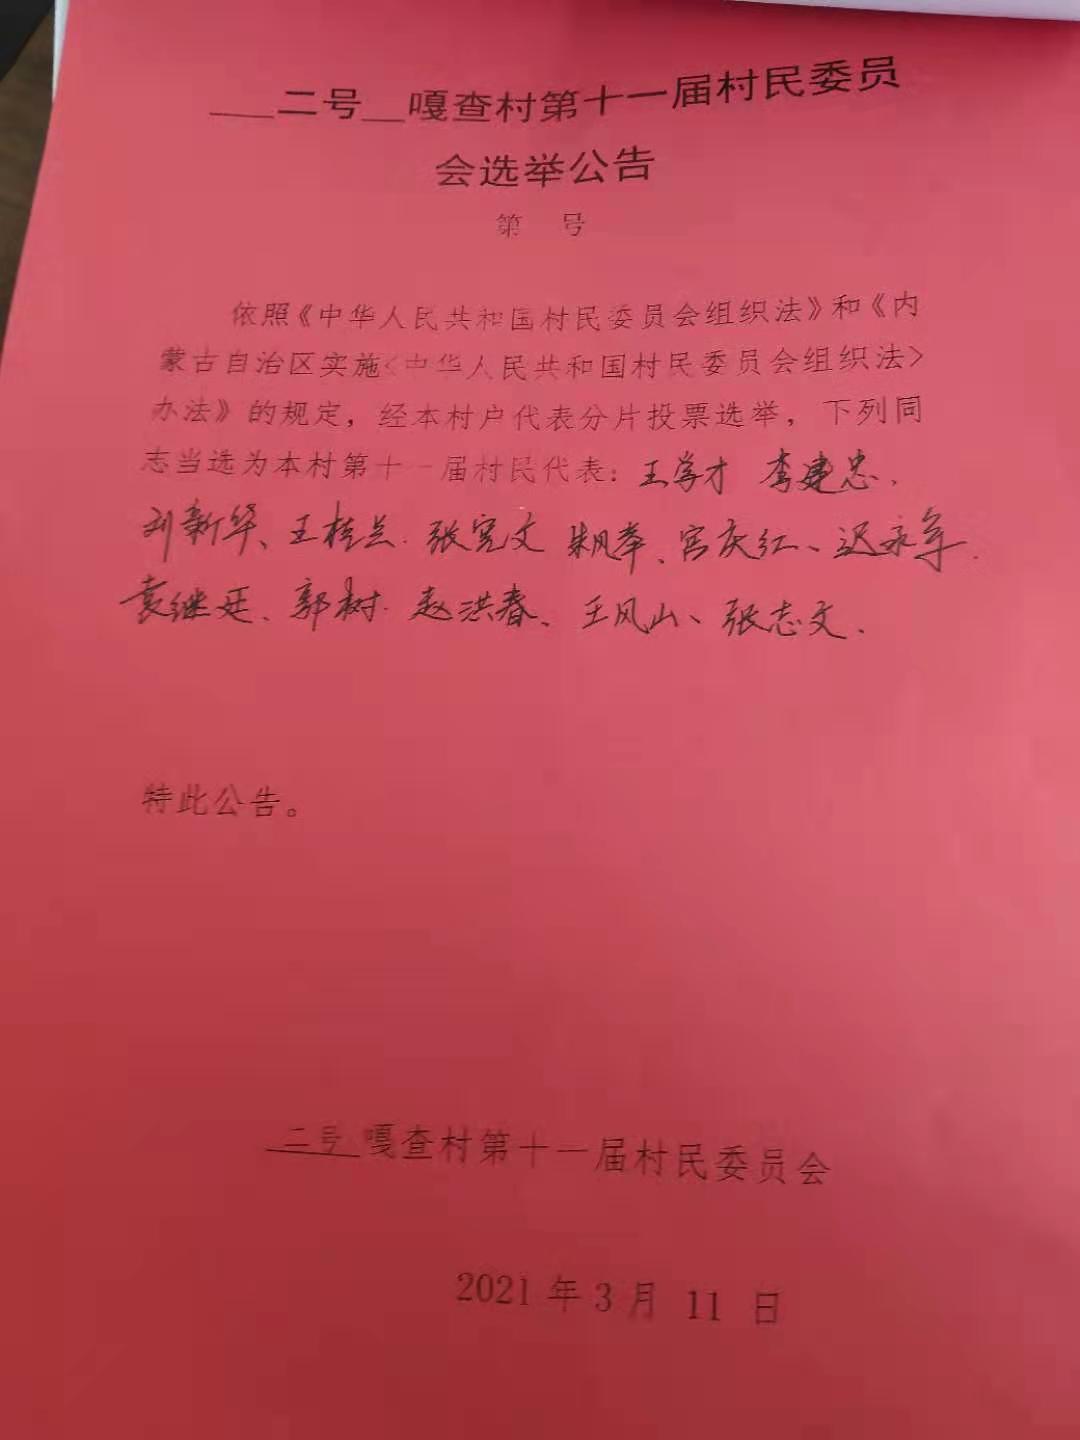 二号 嘎查村第十一届村民委员
会选举公告
第 号
依照《中华人民共和国村民委员会组织法》和《内
蒙古自治区实施<中华人民共和国村民委员会组织法>
办法》的规定，经本村户代表分片投票选举，下列同
志当选为本村第十一届村民代表：王学才 李建忠、
刘新华、王桂兰、张宪文 朱凤苹、宫庆红、迟永军、
袁继廷、郭树、赵洪春、王凤山、张志文、
特此公告。
二号 嘎查村第十一届村民委员会
2021年3月 11 日